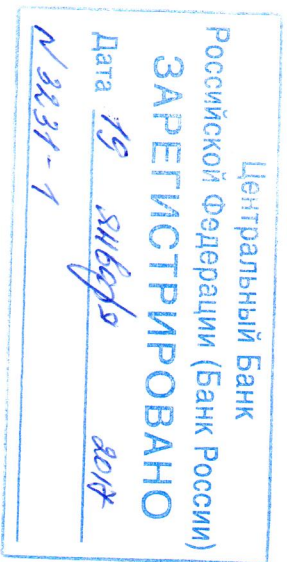 Центральный Банк
Российской Федерации (Банк России)
ЗАРЕГИСТРИРОВАНО
Дата 19 января 2017
N 3231-1